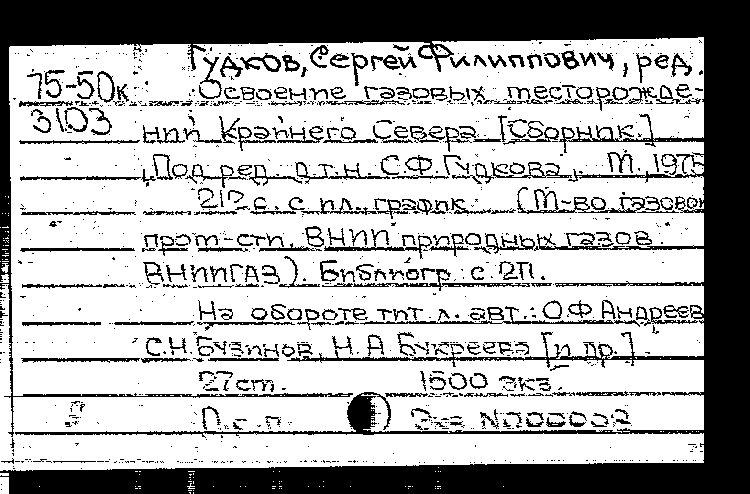 Гудков, Сергей Филиппович, ред.
75-50к Освоение газовых месторожде-
3103 ний Крайнего Севера [Сборник.]
Под ред. д.т.н. С.Ф. Гудкова. М., 1975
212 с. с ил., график. (М-во газовой
пром-сти. ВНИИ природных газов.
ВНИИГАЗ). Библиогр. с. 211.
На обороте тит. л. авт.: О.Ф Андреев
С.Н. Бузинов, Н.А Букреева [и др.].
27 cm. 1500 экз.
Экз N000002